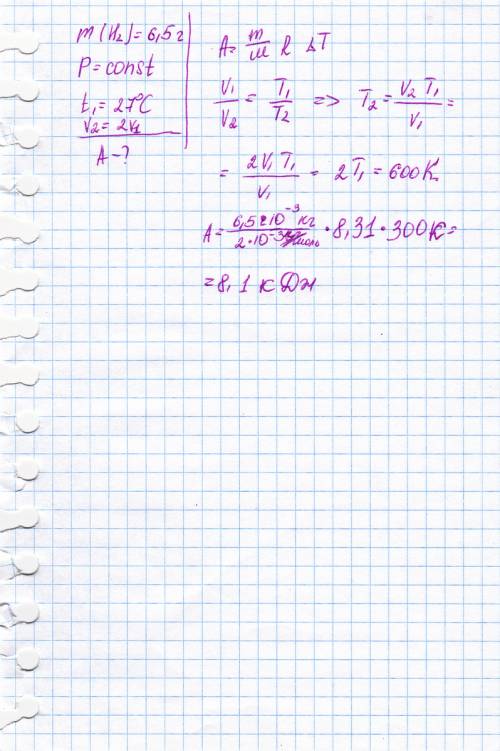 m(H₂)=6,5г
P=const
t₁=27°C
V₂=2V₁
A-?
A= m/M R ΔT
V₁/V₂ = T₁/T₂ => T₂= V₂ T₁/V₁ =
= 2V₁ T₁/V₁ = 2T₁ = 600K
A= 6,5·10⁻³ кг/2·10⁻³ кг/моль ·8,31·300K=
=8,1 кДж